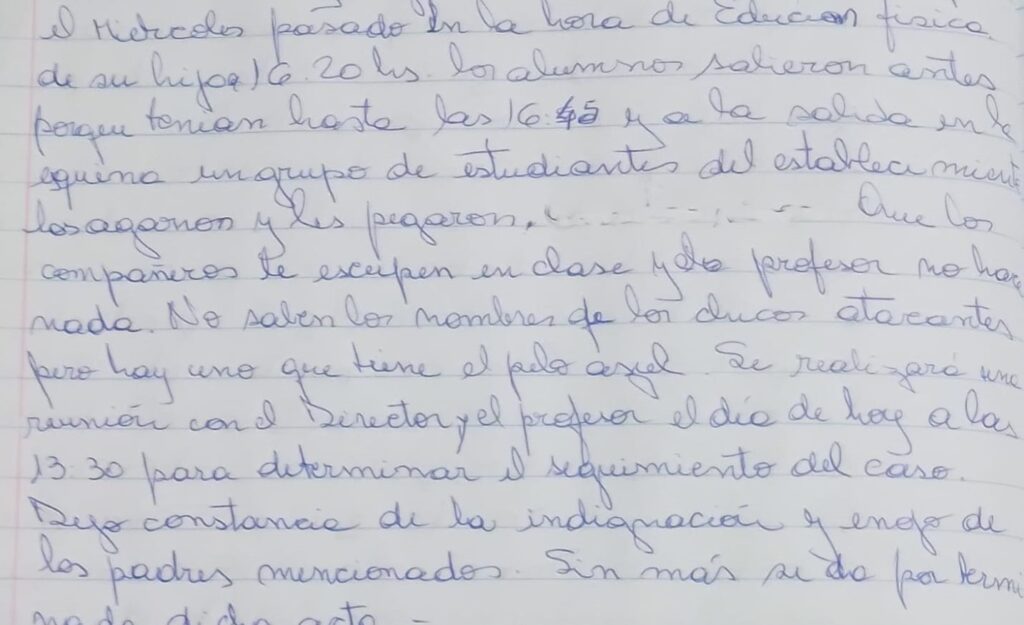 el Miércoles pasado en la hora de Educion fisica
de su hijo, 16.20 hs. los alumnos salieron antes
porque tenian hasta las 16:45 y a la salida en la
equina un grupo de estudiantes del establecimient
los agarron y les pegaron. Que los
compañeros te escupen en clase y do profesor no hac
nada. No saben los nombres de los chicos atacantes
pero hay uno que tiene el pelo azul. Se realizará una
reunión con el Director y el profesor el día de hoy a las
13:30 para determinar el seguimiento del caso.
Dejo constancia de la indignación y enojo de
los padres mencionados. Sin más se da por termi
nada dicha acta. -